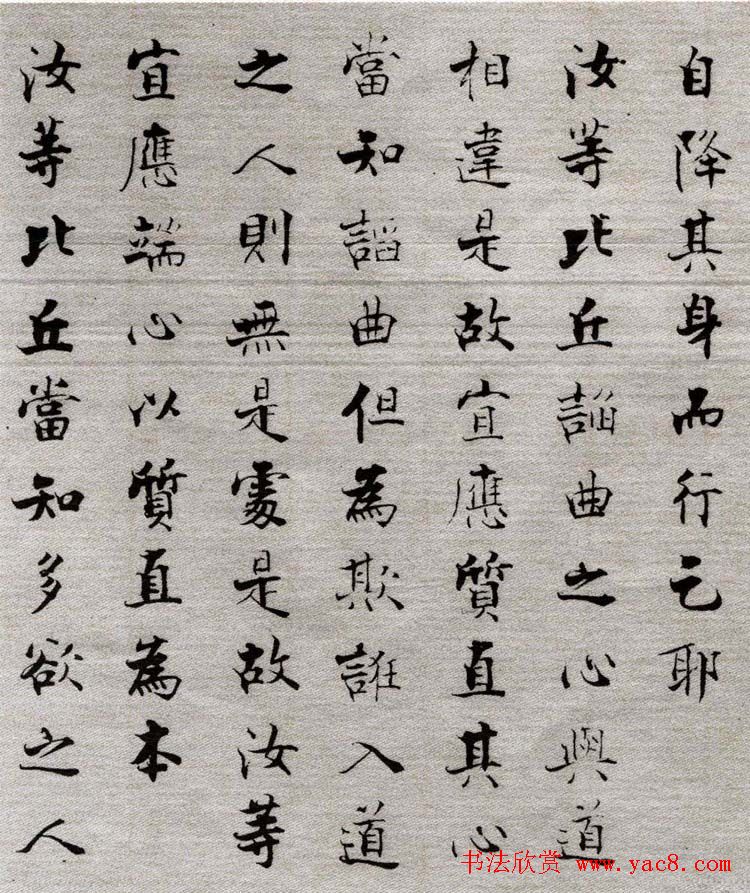 自降其身而行乞耶
汝等比丘諂曲之心與道
相違是故宜應質直其心
當知諂曲但為欺誑入道
之人則無是處是故汝等
宜應端心以質直為本
汝等比丘當知多欲之人
书法欣赏 www.yac8.com